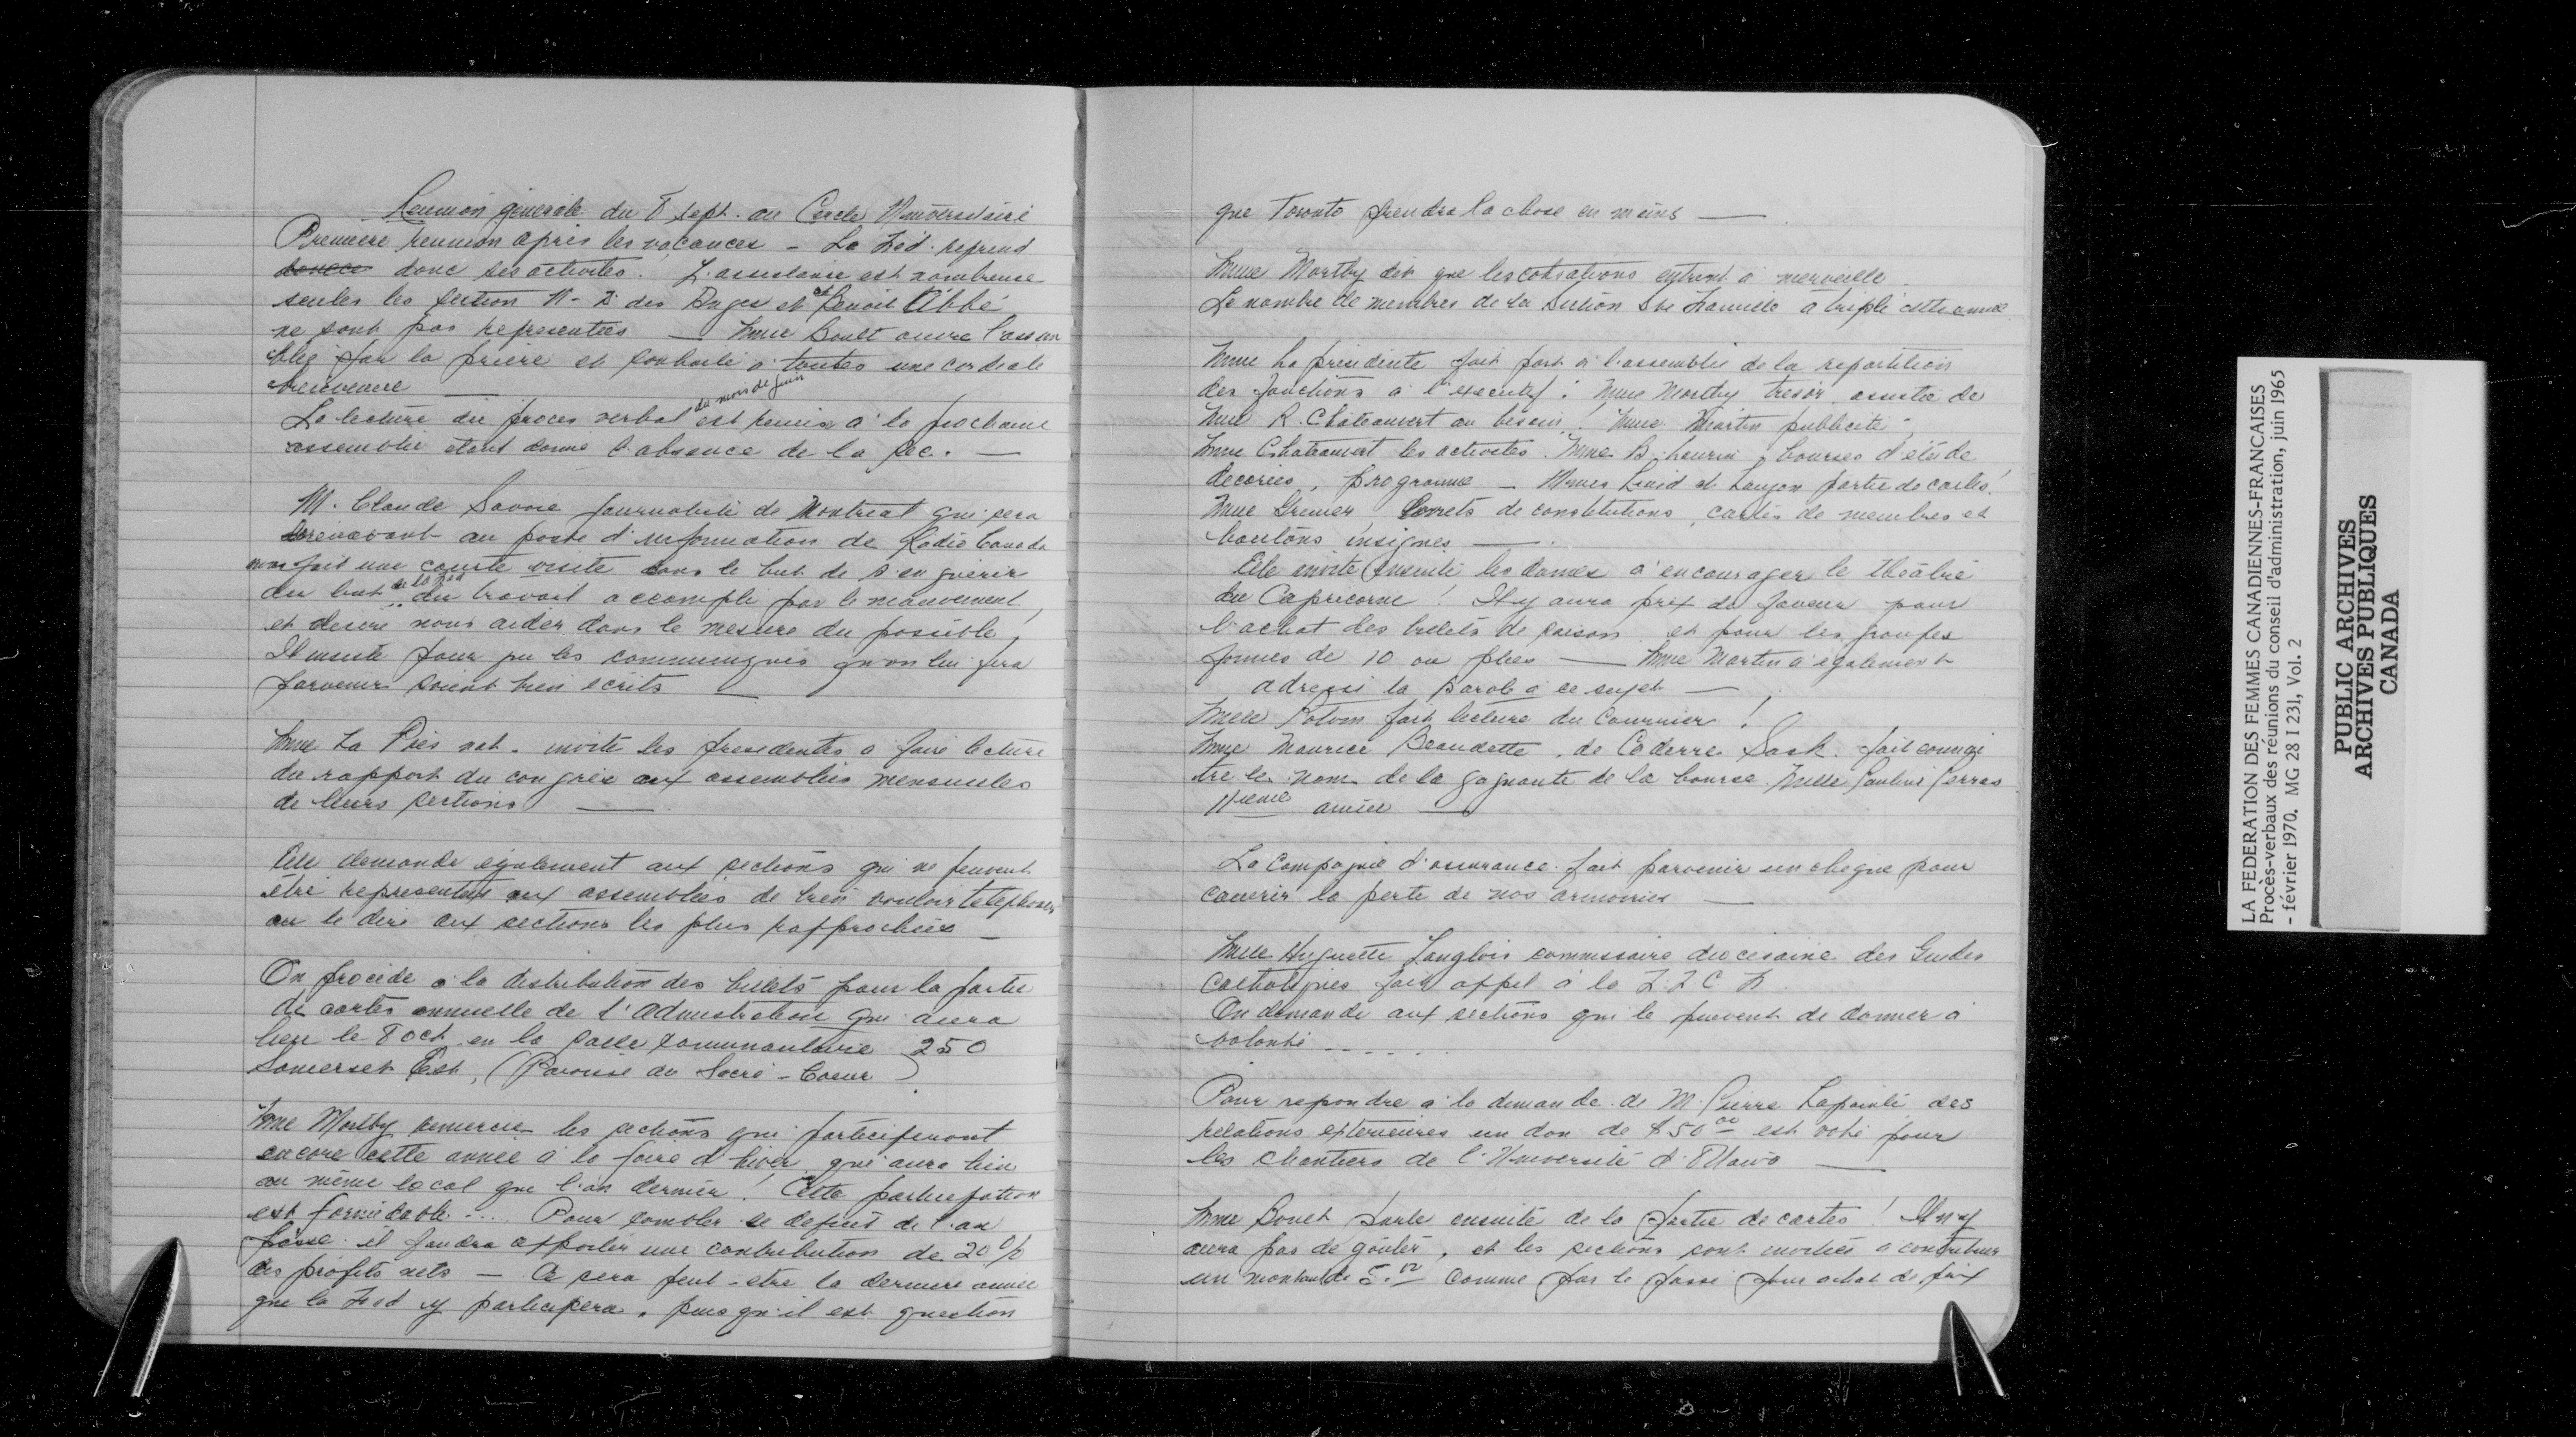 Reunion générale du 8 sept. au Cercle Universitaire
Premiere reunion après les vacances - La Féd. reprend
donc ses activités. L'assistance est nombreuse
seules les section N-D des Anges et St Benoit Abbé
ne sont pas representées — Mme Boult ouvre l'assem
blée par la prière et souhaite à toutes une cordiale
bienvenue —
du mois de juin
La lecture du proces verbal est remise à la prochaine
assemblée étant donné l'absence de la sec. —
M. Claude Savoie journaliste de Montreal qui sera
dorénavant au poste d'information de Radio Canada
nous fait une courte visite dans le but de s'enquérir
de la Féd
du but du travail accompli par le mouvement
et desire nous aider dans la mesure du possible,
Il insiste pour que les communiqués qu'on lui fera
parvenir soient bien ecrits —
Mme La Prés nat. invite les presidentes a faire lecture
du rapport du congrès aux assemblées mensuelles
de leurs sections —
Elle demande également aux sections qui ne peuvent
être representées aux assemblées de bien vouloir telephoner
ou le dire aux sections les plus rapprochées —
On procède à la distribution des billets pour la partie
de cartes annuelle de l'Administration qui aura
lieu le 8 oct. en la salle communautaire 250
Somerset Est, (Paroisse du Sacré-Coeur)
Mme Mortby remercie les sections qui participeront
encore cette année à la foire d'hiver qui aura lieu
au même local que l'an dernier! Cette participation
est formidable... Pour combler le deficit de l'an
passé il faudra apporter une contribution de 20%
des profits nets — Ce sera peut-etre la derniere année
que la Fed y participera, puisqu'il est question
que Toronto prendra la chose en mains —
Mme Mortby dit que les cotisations entrent à merveille.
Le nombre de membres de la Section Ste Famille a triplé cette année
Mme La présidente fait part à l'assemblée de la repartition
des fonctions à l'executif: Mme Mortby trésor. assistée de
Mme R. Châteauvert au besoin! Mme Martin publicité -
Mme Châteauvert les activités. Mme B. Laurin, bourses d'étude
, programme — Mmes et Lauzon partie de cartes!
Mme Grenier Livrets de constitutions, cartes de membres et
boutons insignes —
Elle invite ensuite les dames à encourager le théâtre
du Capricorne! Il y aura prix de faveur pour
l'achat des billets de saison et pour les groupes
formés de 10 ou plus — Mme Martin a également
adressé la parole à ce sujet —
Mme Potvin fait lecture du Courrier!
Mme Maurice Beaudette, de Coderre Sask. fait connai
tre le nom de la gagnante de la bourse. Melle Pauline Perras
11ieme année —
La Compagnie d'assurance fait parvenir un cheque pour
couvrir la perte de nos armoiries —
Melle Huguette Langlois commissaire diocésaine des Guides
Catholiques fait appel à la F.F.C.F.
On demande aux sections qui le peuvent de donner à
volonté - - - - -
Pour repondre à la demande de M. Pierre Lapointe des
relations exterieures un don de $50.00 est voté pour
les chantiers de l'Université d'Ottawa —
Mme Boult parle ensuite de la partie de cartes! Il n'y
aura pas de goûter, et les sections sont invitées à contribuer
un montant de 5.00 comme par le passé pour achat de prix
LA FEDERATION DES FEMMES CANADIENNES-FRANCAISES
Procès-verbaux des réunions du conseil d'administration, juin 1965
- février 1970. MG 28 I 231, Vol. 2
PUBLIC ARCHIVES
ARCHIVES PUBLIQUES
CANADA